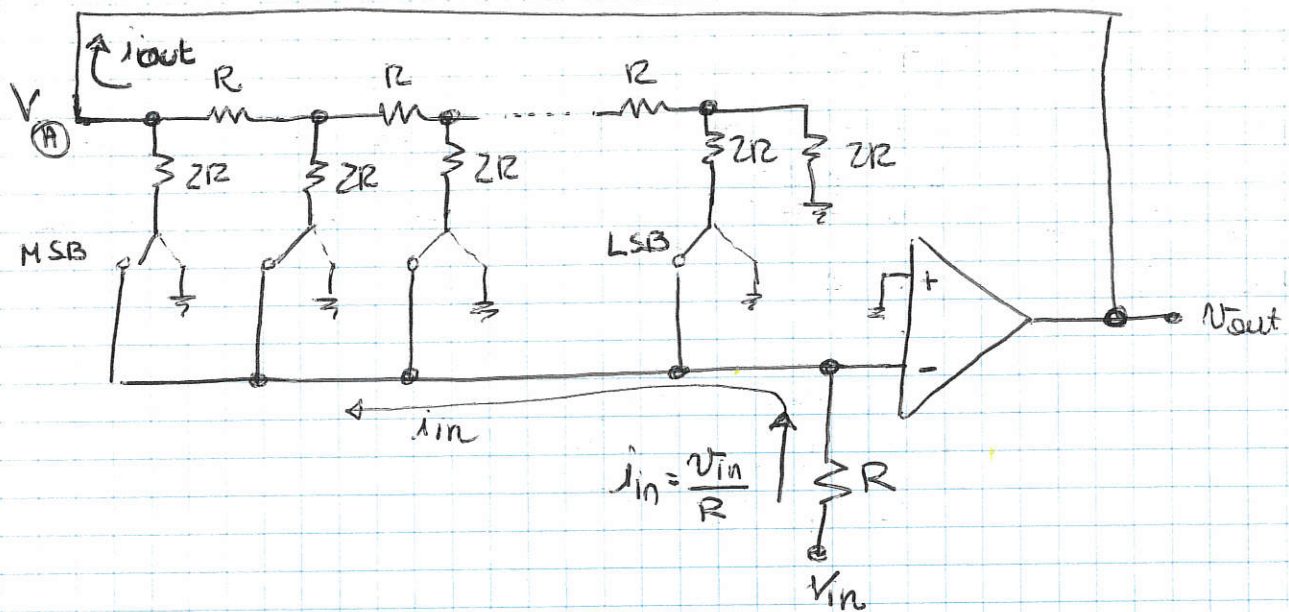 iout
R
R
R
V
A
2R
2R
2R
2R
2R
MSB
LSB
+
-
Vout
iin
iin = Vin / R
R
Vin